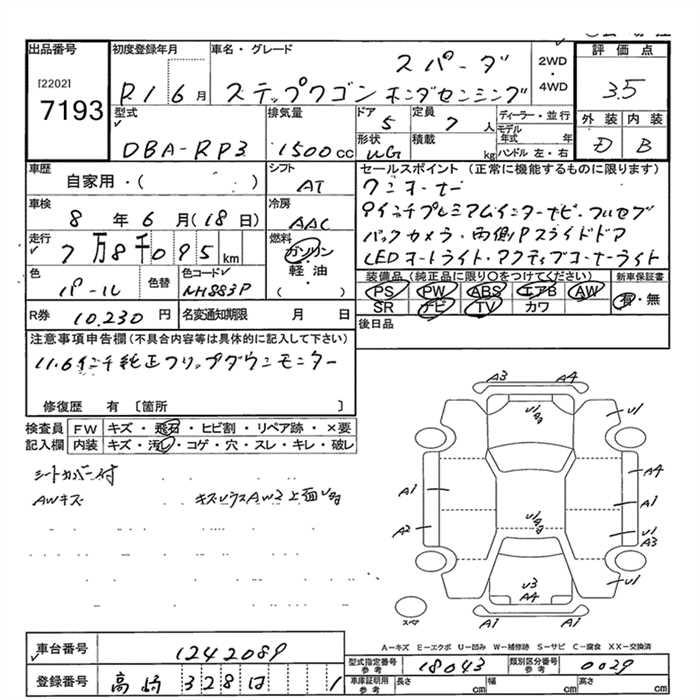 出品番号
[2202]
7193
初度登録年月
R1 6月
車名・グレード
スパーダ
ステップワゴン ホンダセンシング
2WD
・
4WD
評価点
3.5
外装 内装
D B
型式
DBA-RP3
排気量
1500 cc
ドア
5
形状
WG
定員
7 人
積載
kg
ディーラー・並行
モデル年式 年
ハンドル 左・右
車歴
自家用・( )
シフト
AT
車検
8年6月(18日)
冷房
AAC
走行
7万8千095km
燃料
ガソリン
・
軽・油
( )
色
パール
色替
色コード
NH883P
R券
10,230円
名変通知期限 月 日
セールスポイント(正常に機能するものに限ります)
ワンオーナー
9インチプレミアムインターナビ・フルセグ
バックカメラ・両側Pスライドドア
LEDオートライト・アクティブコーナーライト
装備品(純正品に限り〇をつけてください)
新車保証書
PS PW ABS エアB AW
SR ナビ TV カワ
有・無
後日品
注意事項申告欄(不具合内容等は具体的に記入して下さい)
11.6インチ純正フリップダウンモニター
修復歴 有〔箇所 〕
検査員
記入欄
FW キズ・飛石・ヒビ割・リペア跡・×要
内装 キズ・汚レ・コゲ・穴・スレ・キレ・破レ
シートカバー付
AWキズ
A3 A4
U1
A4
A1 A1
A2
U1
A3
U3
A4
U1
A1 A1
スペア
A-キズ E-エクボ U-凹み W-補修跡 S-サビ C-腐食 XX-交換済
車台番号
1242089
登録番号
高崎 328 は 1
型式指定番号
参考
18043
類別区分番号
参考
0029
車庫証明用
参考
長さ cm
幅 cm
高さ cm